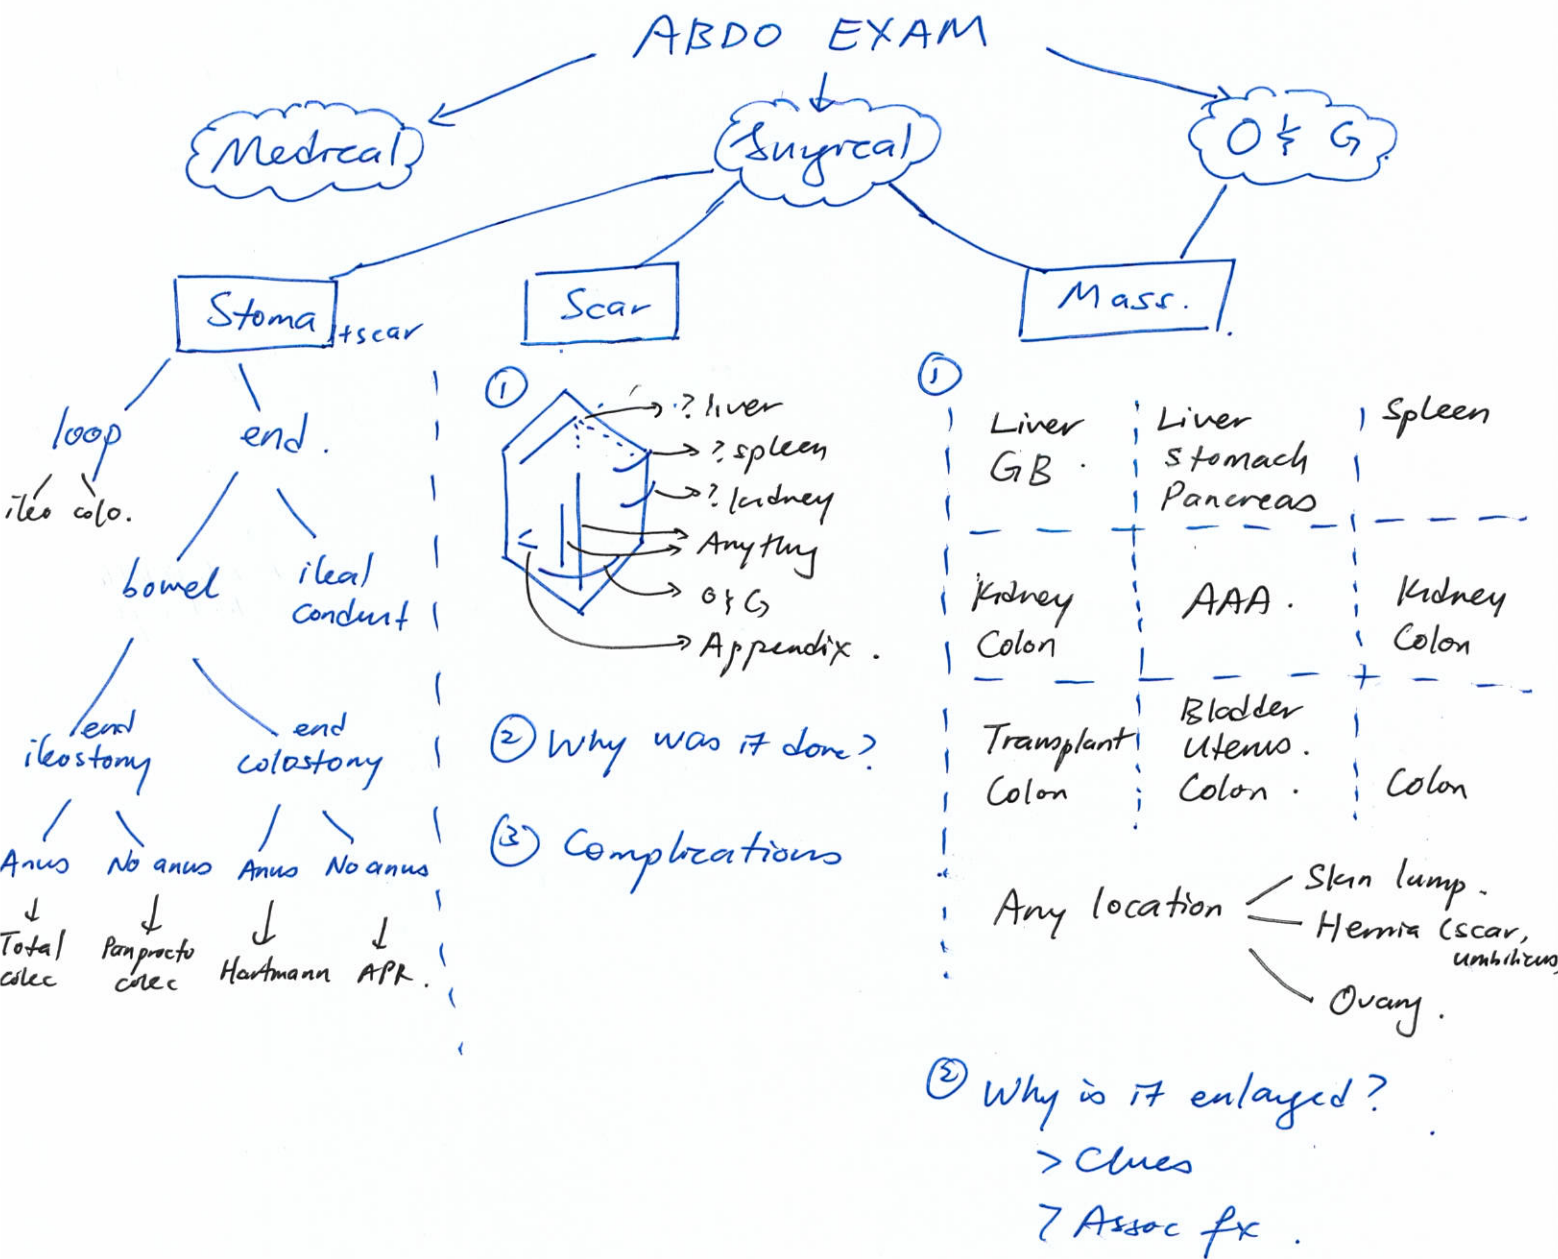 ABDO EXAM
Medical
Surgical
O & G
Stoma
+scar
loop
end.
ileo colo.
bowel
ileal
conduit
end
ileostomy
end
colostomy
Anus
No anus
Anus
No anus
Total
colec
Panprocto
colec
Hartmann
APR.
Scar
①
? liver
? spleen
? kidney
Anything
O & G
Appendix.
② Why was it done?
③ Complications
Mass.
①
Liver
GB.
Liver
Stomach
Pancreas
Spleen
Kidney
Colon
AAA.
Kidney
Colon
Transplant
Colon
Bladder
Uterus.
Colon.
Colon
Any location
Skin lump.
Hernia (scar,
umbilicus
Ovary.
② Why is it enlarged?
> Clues
> Assoc fx.